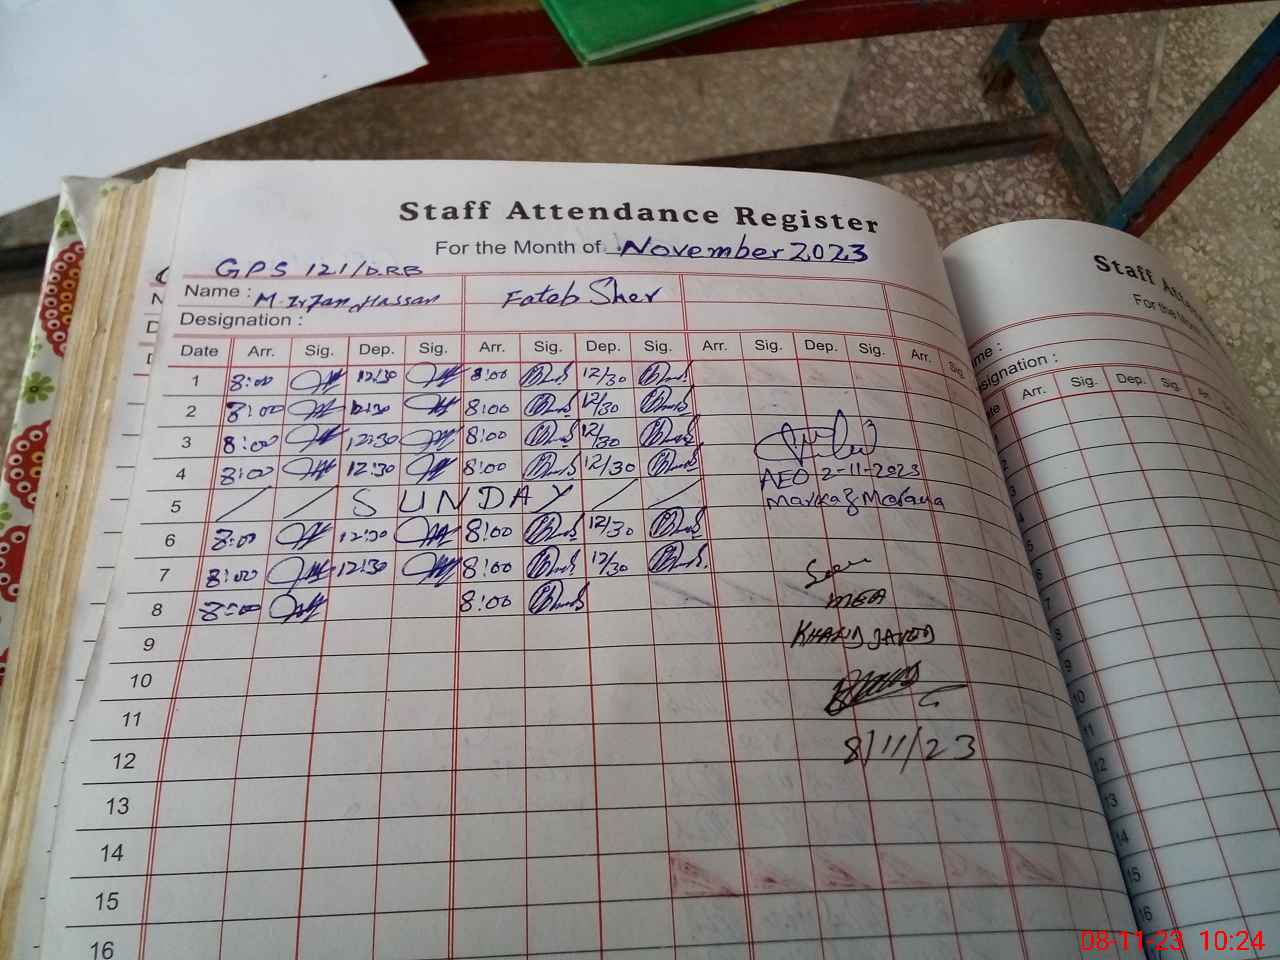 Staff Attendance Register
For the Month of November 2023
GPS 121/D.R.B
Name : M. Irfan Hassan Fateh Sher
Designation :
Date Arr. Sig. Dep. Sig. Arr. Sig. Dep. Sig. Arr. Sig. Dep. Sig. Arr. Sig.
1 8:00 12:30 8:00 12/30
2 8:00 12:30 8:00 12/30
3 8:00 12:30 8:00 12/30
4 8:00 12:30 8:00 12/30
5 SUNDAY
6 8:00 12:30 8:00 12/30
7 8:00 12:30 8:00 12/30
8 8:00 8:00
9
10
11
12
13
14
15
16
AEO 2-11-2023
Markaz
Seen
MEA
8/11/23
Staff
For the
Designation :
Arr. Sig. Dep. Sig.
08-11-23 10:24